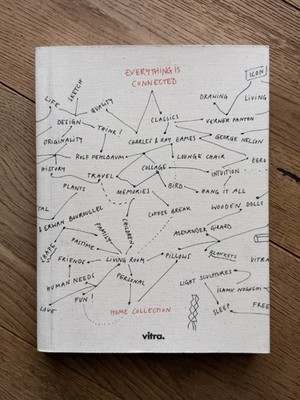 EVERYTHING IS
CONNECTED
ICON
SKETCH
LIFE
QUALITY
DRAWING
LIVING
DESIGN
THINK!
CLASSICS
VERNER PANTON
ORIGINALITY
CHARLES & RAY EAMES
GEORGE NELSON
ROLF FEHLBAUM
COLLAGE
LOUNGE CHAIR
HISTORY
TRAVEL
INTUITION
PLANTS
MEMORIES
BIRD
HANG IT ALL
COFFEE BREAK
WOODEN DOLLS
& ERWAN BOUROULLEC
FAMILY
CHILDREN
ALEXANDER GIRARD
PASTIME
FRIENDS
LIVING ROOM
PILLOWS
BLANKETS
VITRA
HUMAN NEEDS
PERSONAL
LIGHT SCULPTURES
FUN!
ISAMU NOGUCHI
LOVE
HOME COLLECTION
SLEEP
FREE
vitra.